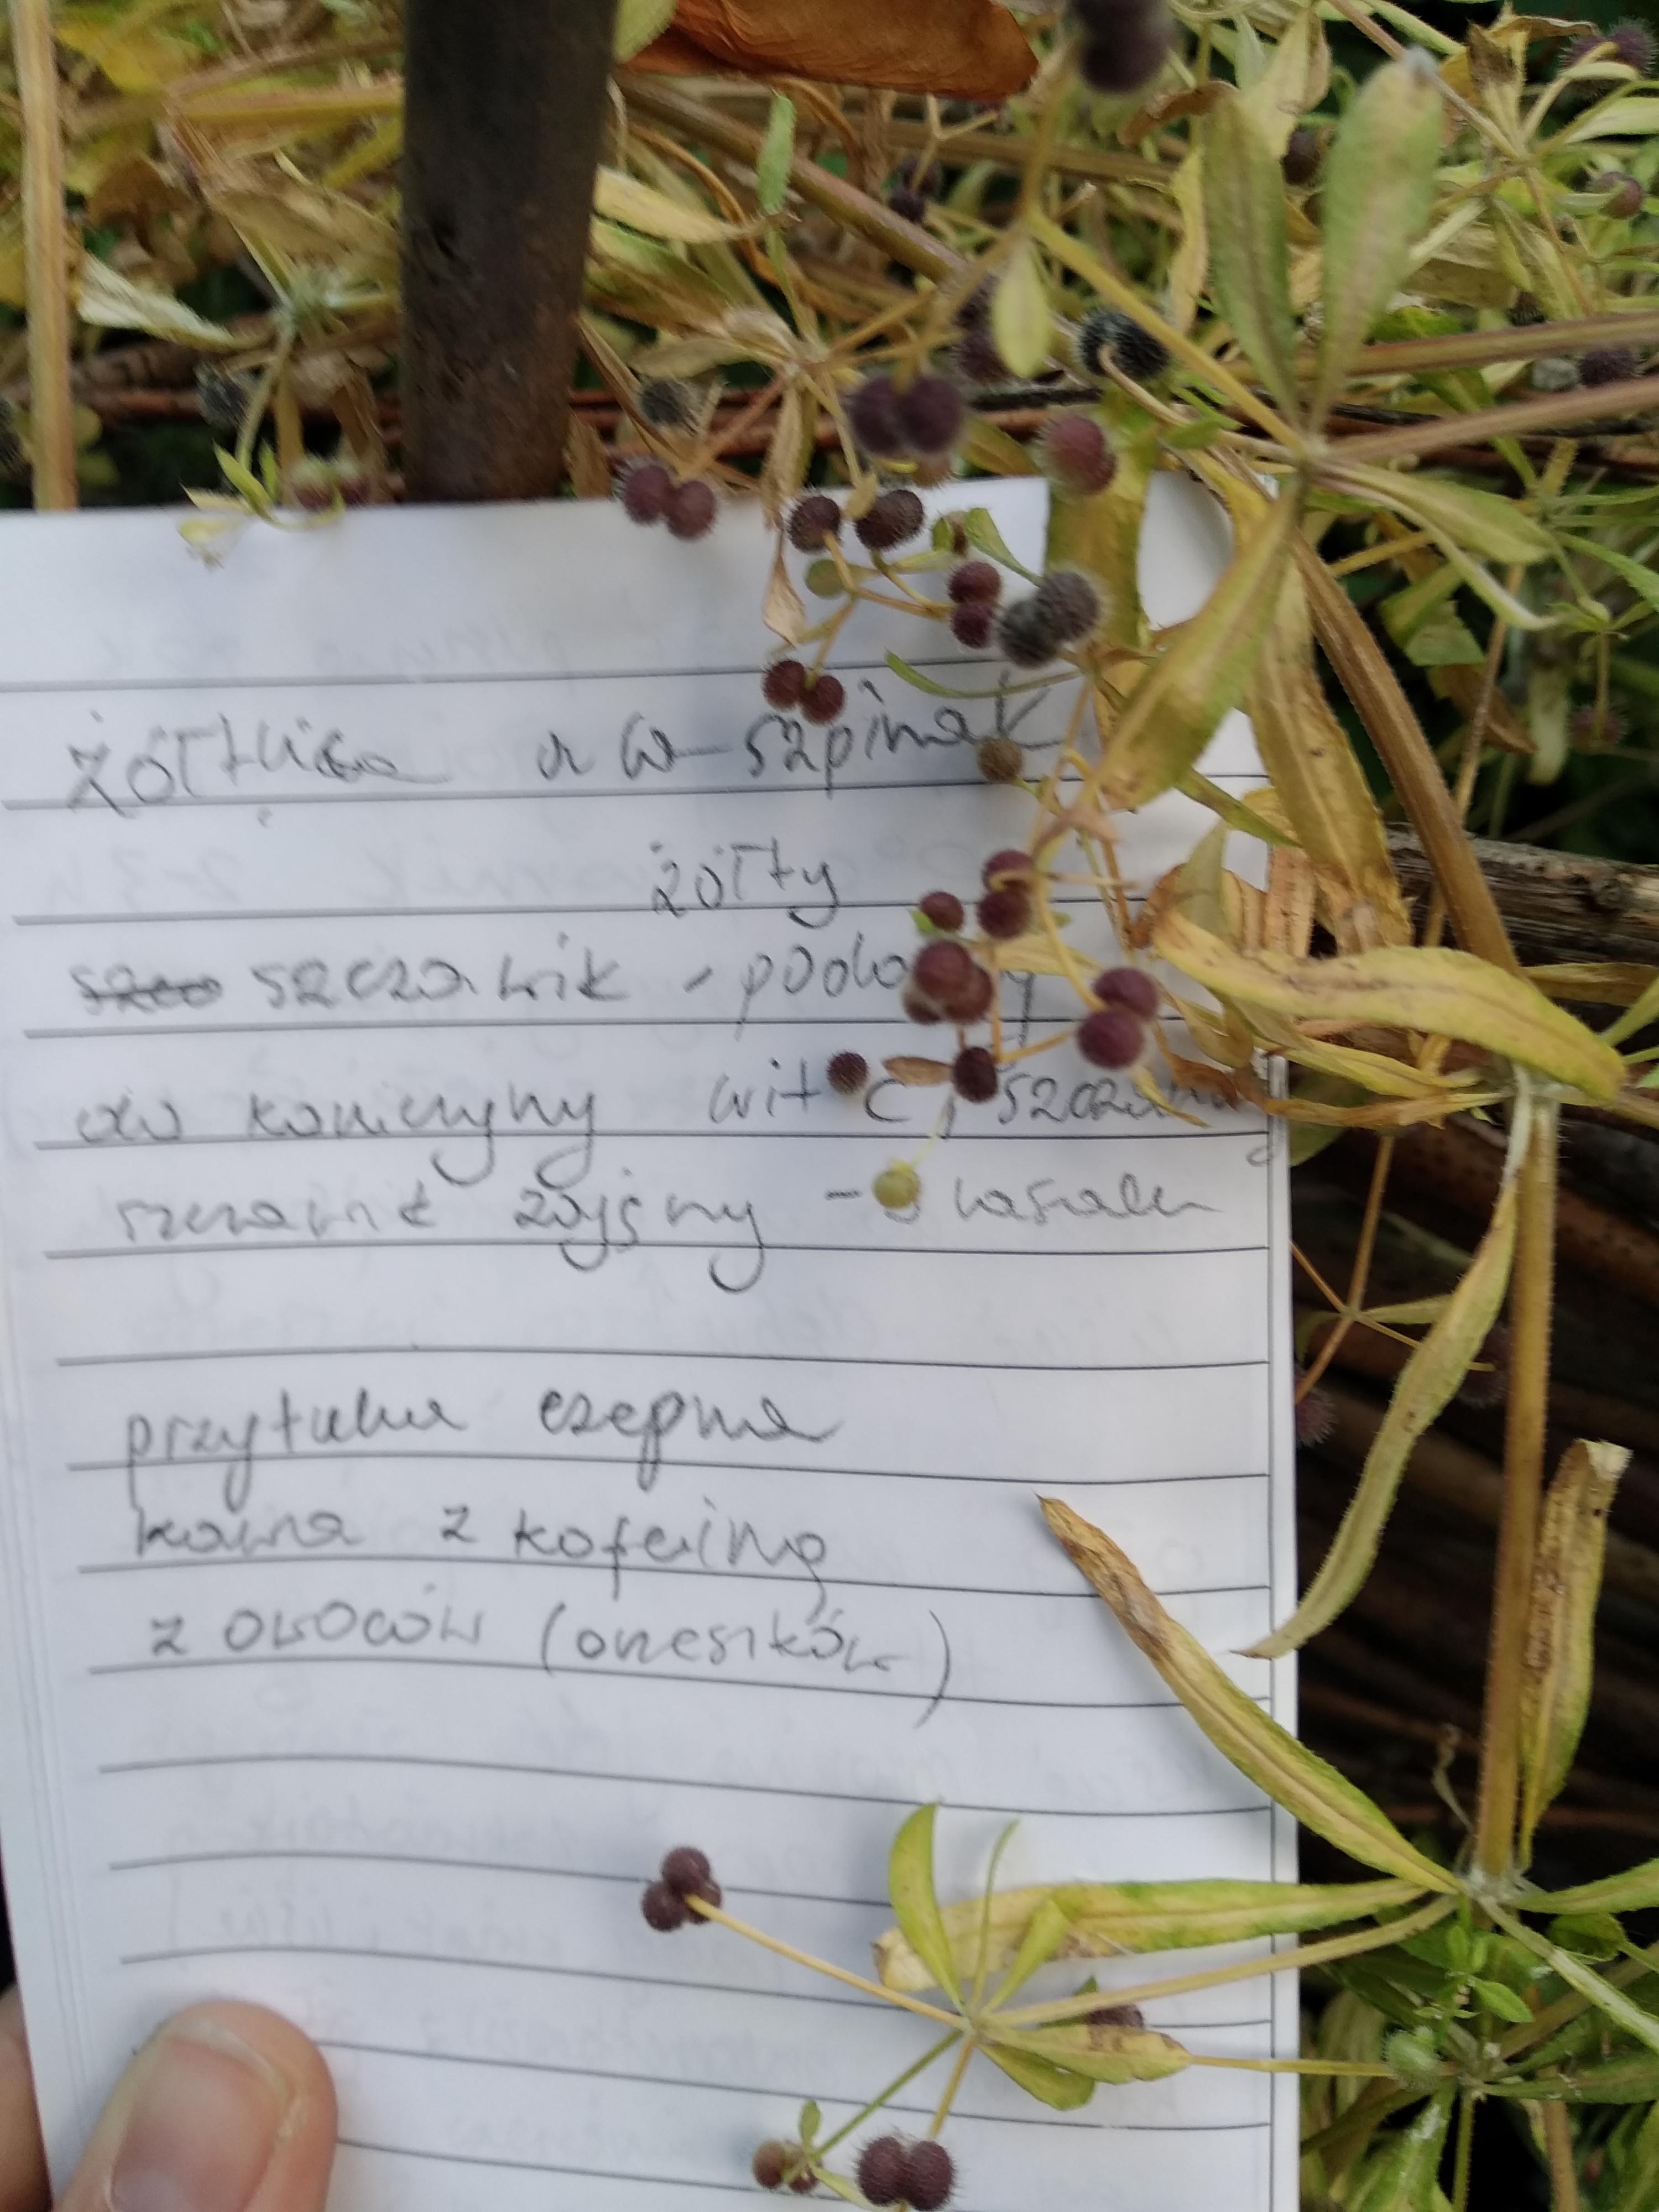 żółtlica a'la szpinak
żółty
szczawik - podobny
do koniczyny wit C, szczawiany
szczawik zajęczy - w lasach
przytulia czepna
kawa z kofeiną
z owoców (orzeszków)